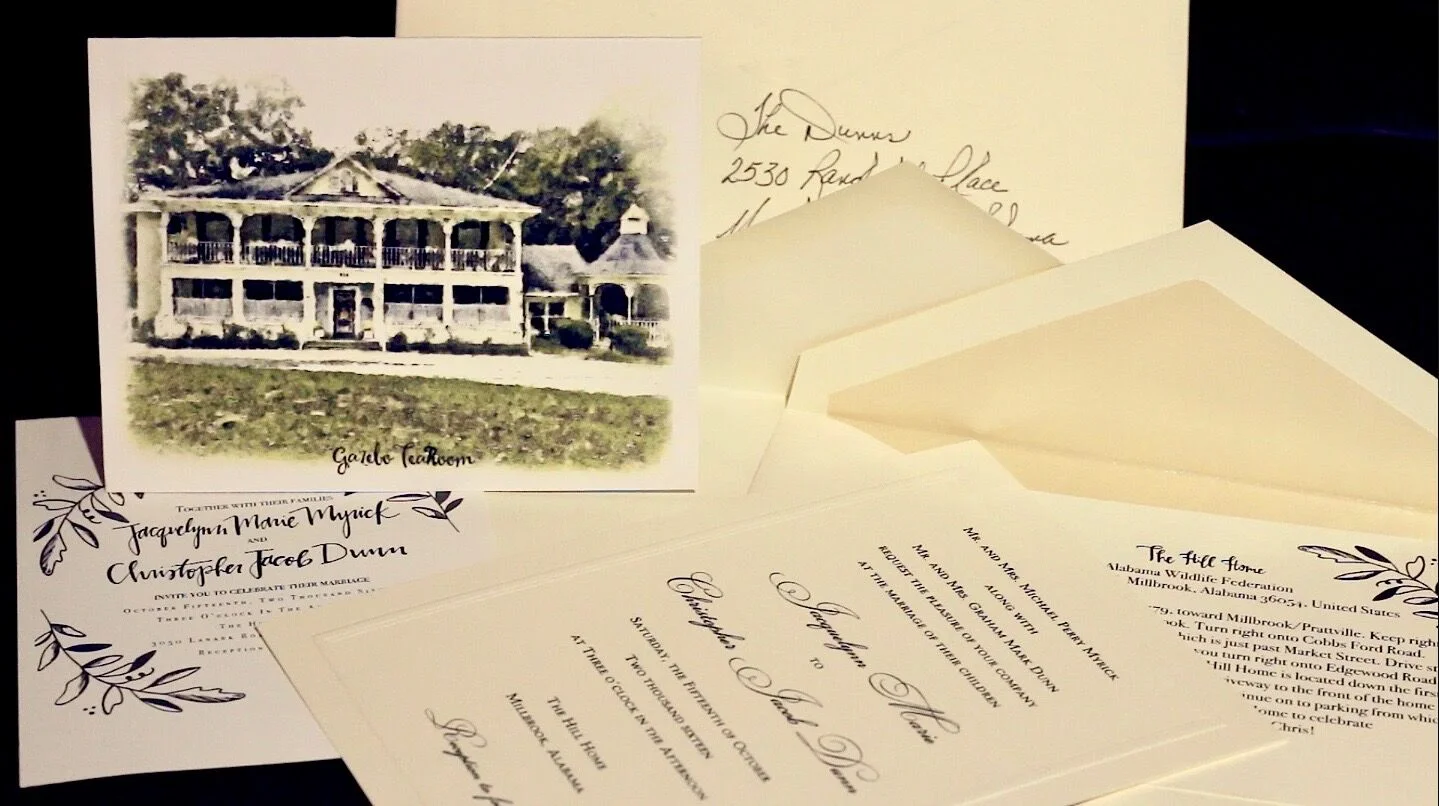 The Dunns
2530 Place
Gazebo TeaRoom
Together with their families
Jacquelynn Marie Myrick
and
Christopher Jacob Dunn
invite you to celebrate their marriage
October Fifteenth, Two Thousand
Three O'clock In The
The
3050 Lanark
Reception
Mr. and Mrs. Michael Perry Myrick
along with
Mr. and Mrs. Graham Mark Dunn
request the pleasure of your company
at the marriage of their children
Jacquelynn Marie
to
Christopher Jacob Dunn
Saturday, the Fifteenth of October
Two thousand sixteen
at Three o'clock in the afternoon
The Hill Home
Millbrook, Alabama
Reception to
The Hill Home
Alabama Wildlife Federation
Millbrook, Alabama 36054, United States
79, toward Millbrook/Prattville. Keep right
Turn right onto Cobbs Ford Road.
which is just past Market Street. Drive
you turn right onto Edgewood Road
Hill Home is located down the first
to the front of the home
on to parking from
to celebrate
Chris!